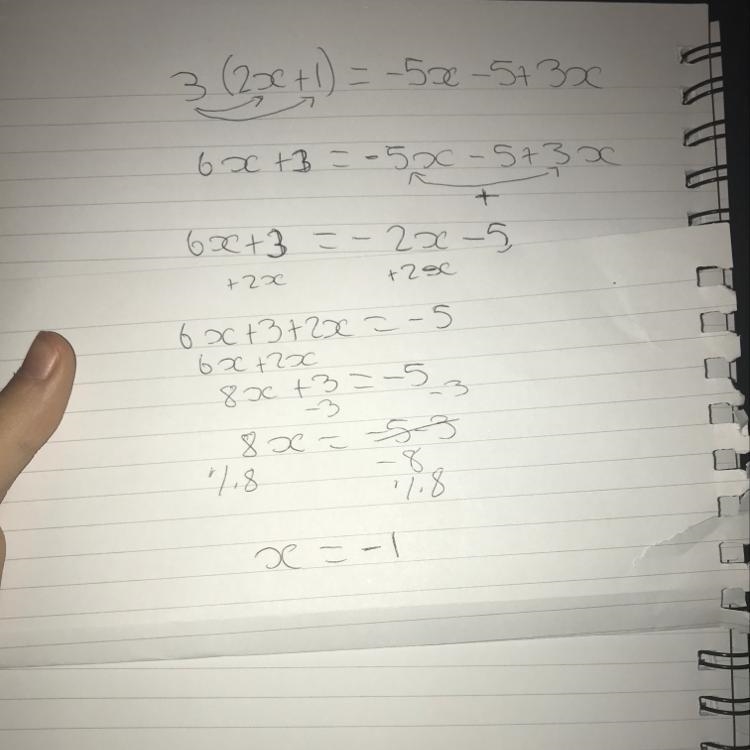 3 (2x+1) = -5x - 5 + 3x
6x + 3 = -5x - 5 + 3x
+
6x + 3 = - 2x - 5
+2x +2x
6x + 3 + 2x = -5
6x + 2x
8x + 3 = -5
-3 -3
8x = -5-3
-8
÷8 ÷8
x = -1